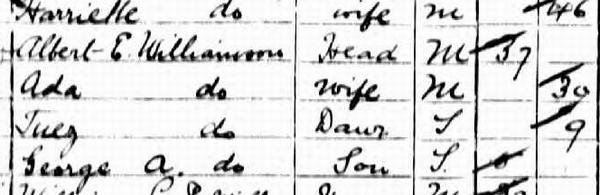 Harriette do wife M 46
Albert E. Williamson Head M 37
Ada do wife M 39
Inez do Daur S 9
George A. do Son S.